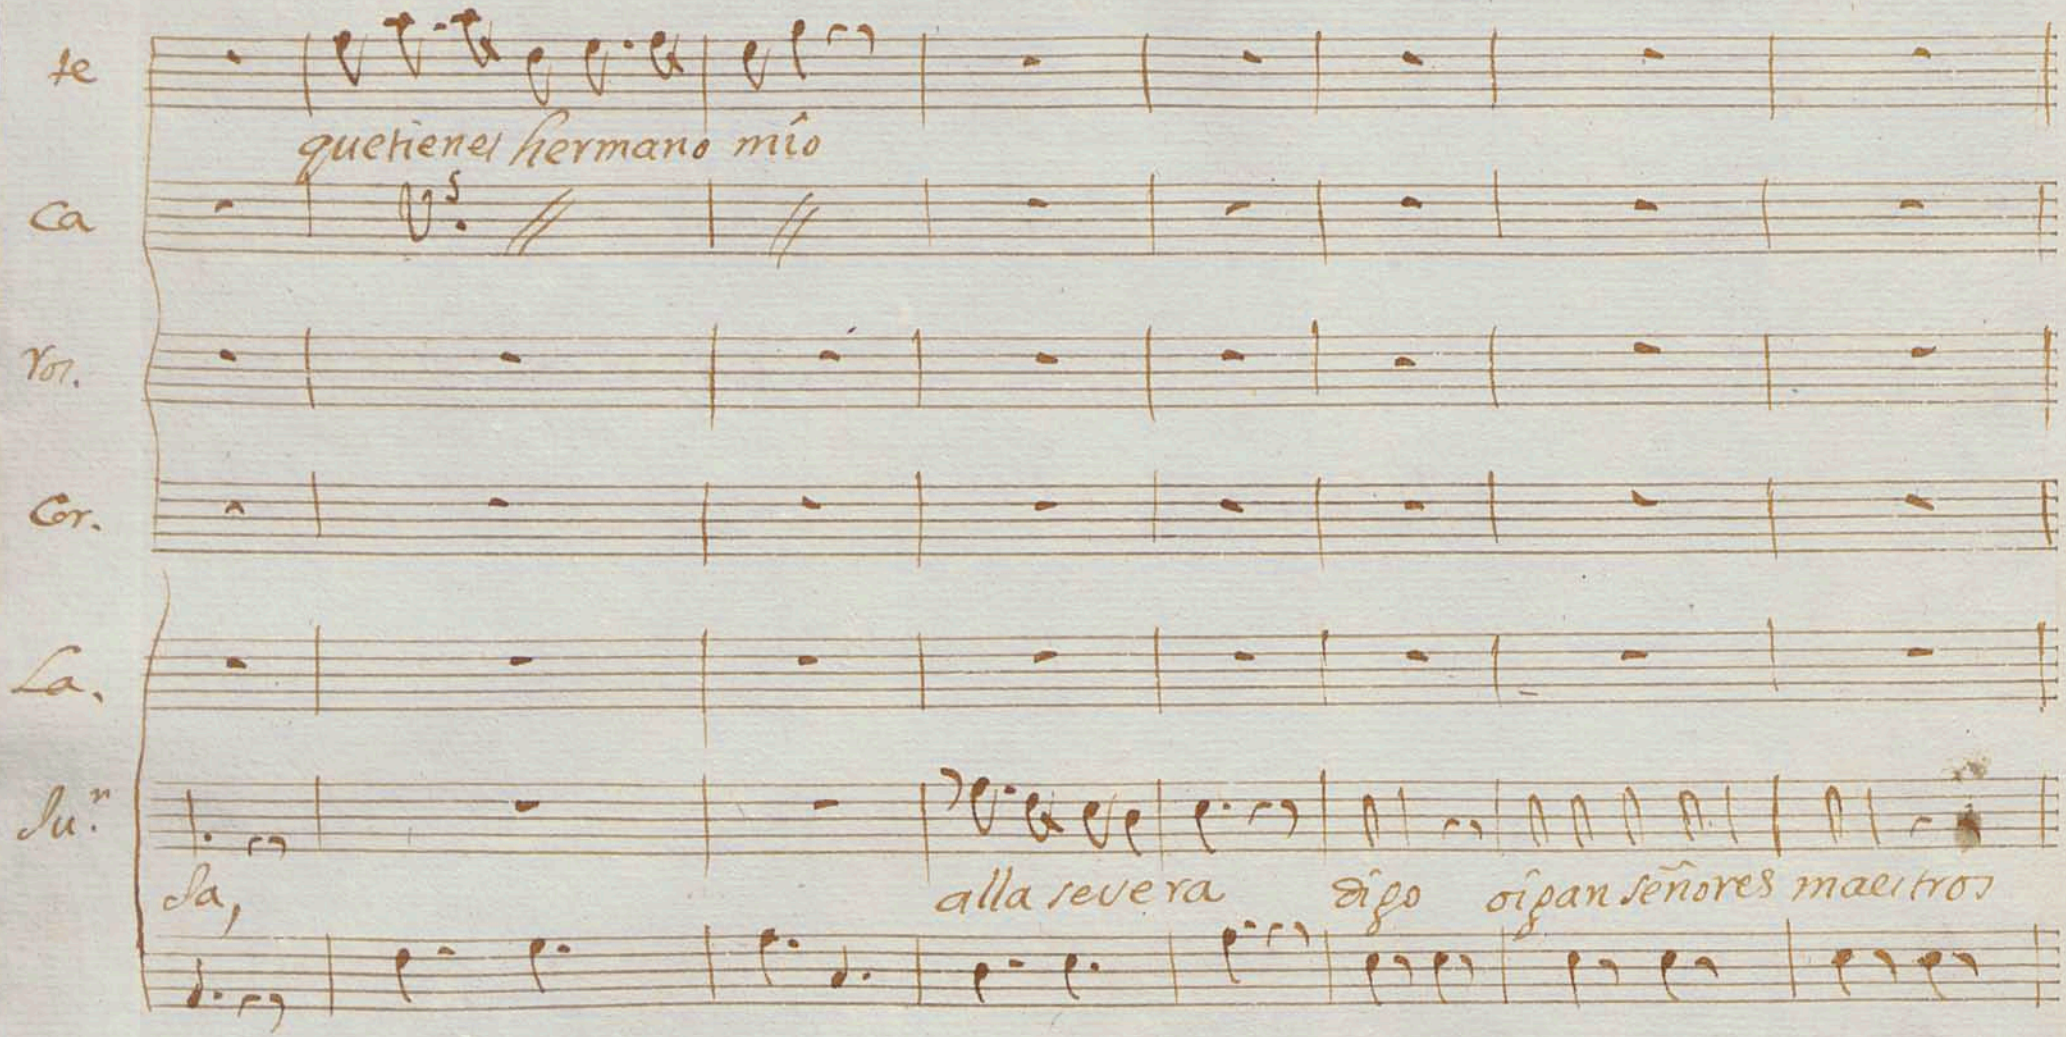 te
que tienes hermano mío
Ca
Vos.
Cor.
La.
Ju.n
sa, alla se vera digo oigan señores maestros